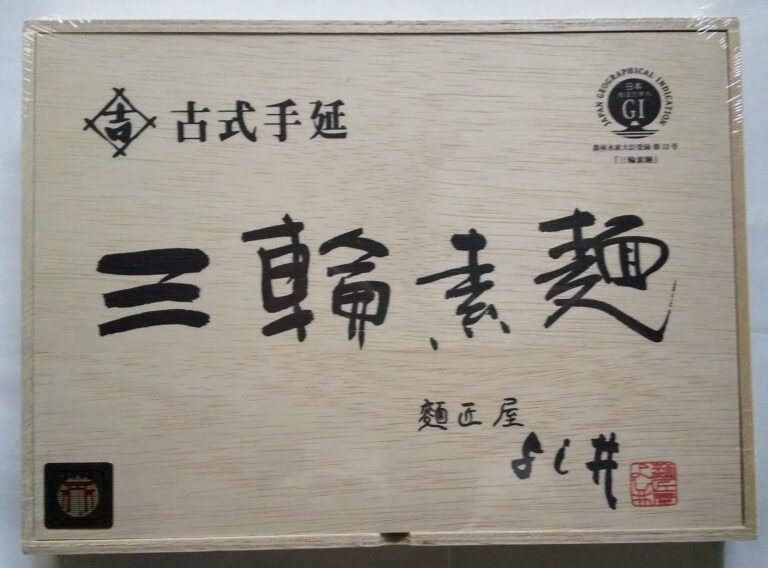 吉 古式手延
JAPAN GEOGRAPHICAL INDICATION
日本
GI
農林水産大臣登録 第12号
「三輪素麺」
三輪素麺
麺匠屋
よし井